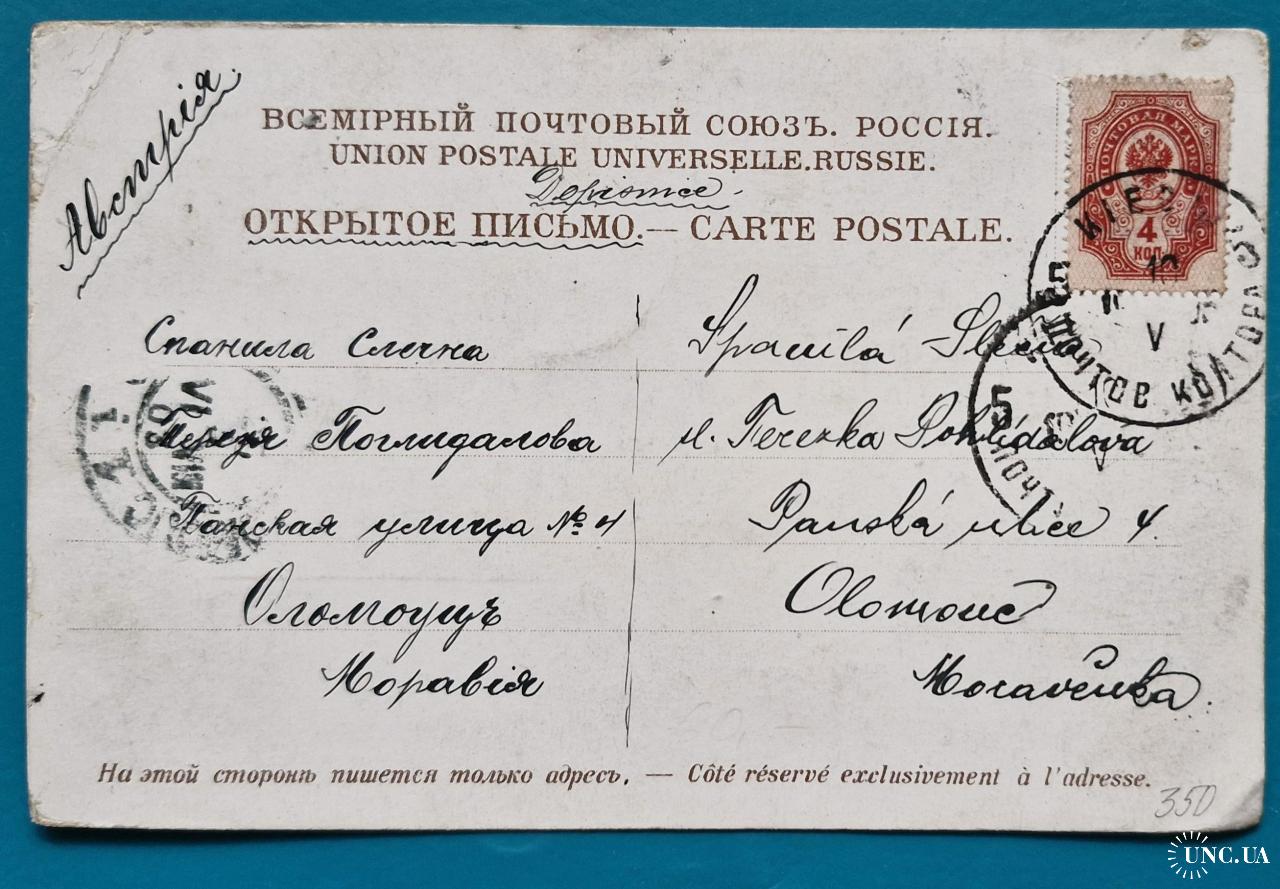 Австрія.
ВСЕМІРНЫЙ ПОЧТОВЫЙ СОЮЗЪ. РОССІЯ.
UNION POSTALE UNIVERSELLE.RUSSIE.
Dopisnice.
ОТКРЫТОЕ ПИСЬМО.— CARTE POSTALE.
ПОЧТОВАЯ МАРКА
4
КОП.
КІЕВ
10
V
5 ПОЧТОВ КОНТОРА 5
5 ПОЧТ
Спанила Слечна
Терезя Поглидалова
Панская улица № 4
Оломоуцъ
Моравія
Spanilá Slečna
sl. Terezka Pohlídalova
Panská ulice 4.
Olomouc
Moravěnka.
На этой сторонѣ пишется только адресъ. — Côté réservé exclusivement à l'adresse.
350
UNC.UA